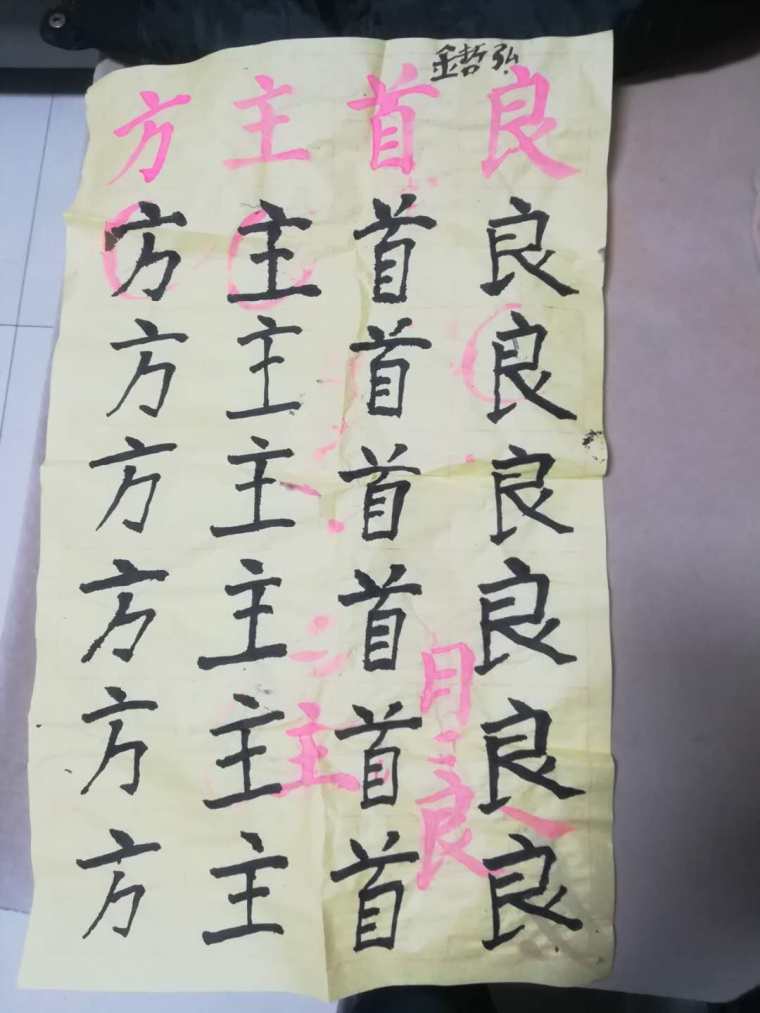 金哲弘
方 主 首 良
方 主 首 良
方 主 首 良
方 主 首 良
方 主 首 良
目
方 主 主 首 良
三
良
方 主 首 良